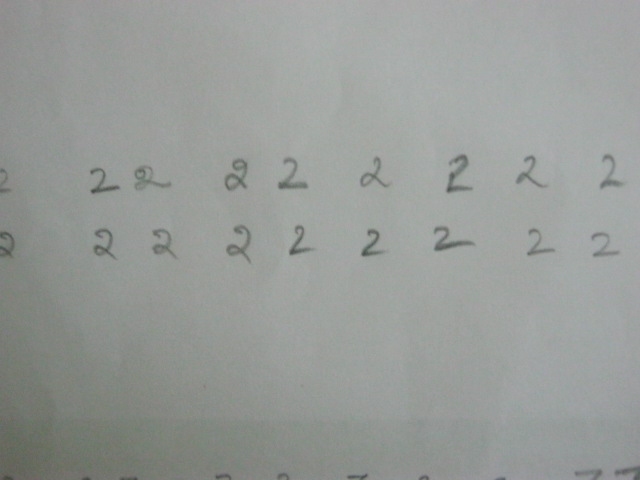 2 2 2 2 2 2 2 2 2
2 2 2 2 2 2 2 2 2